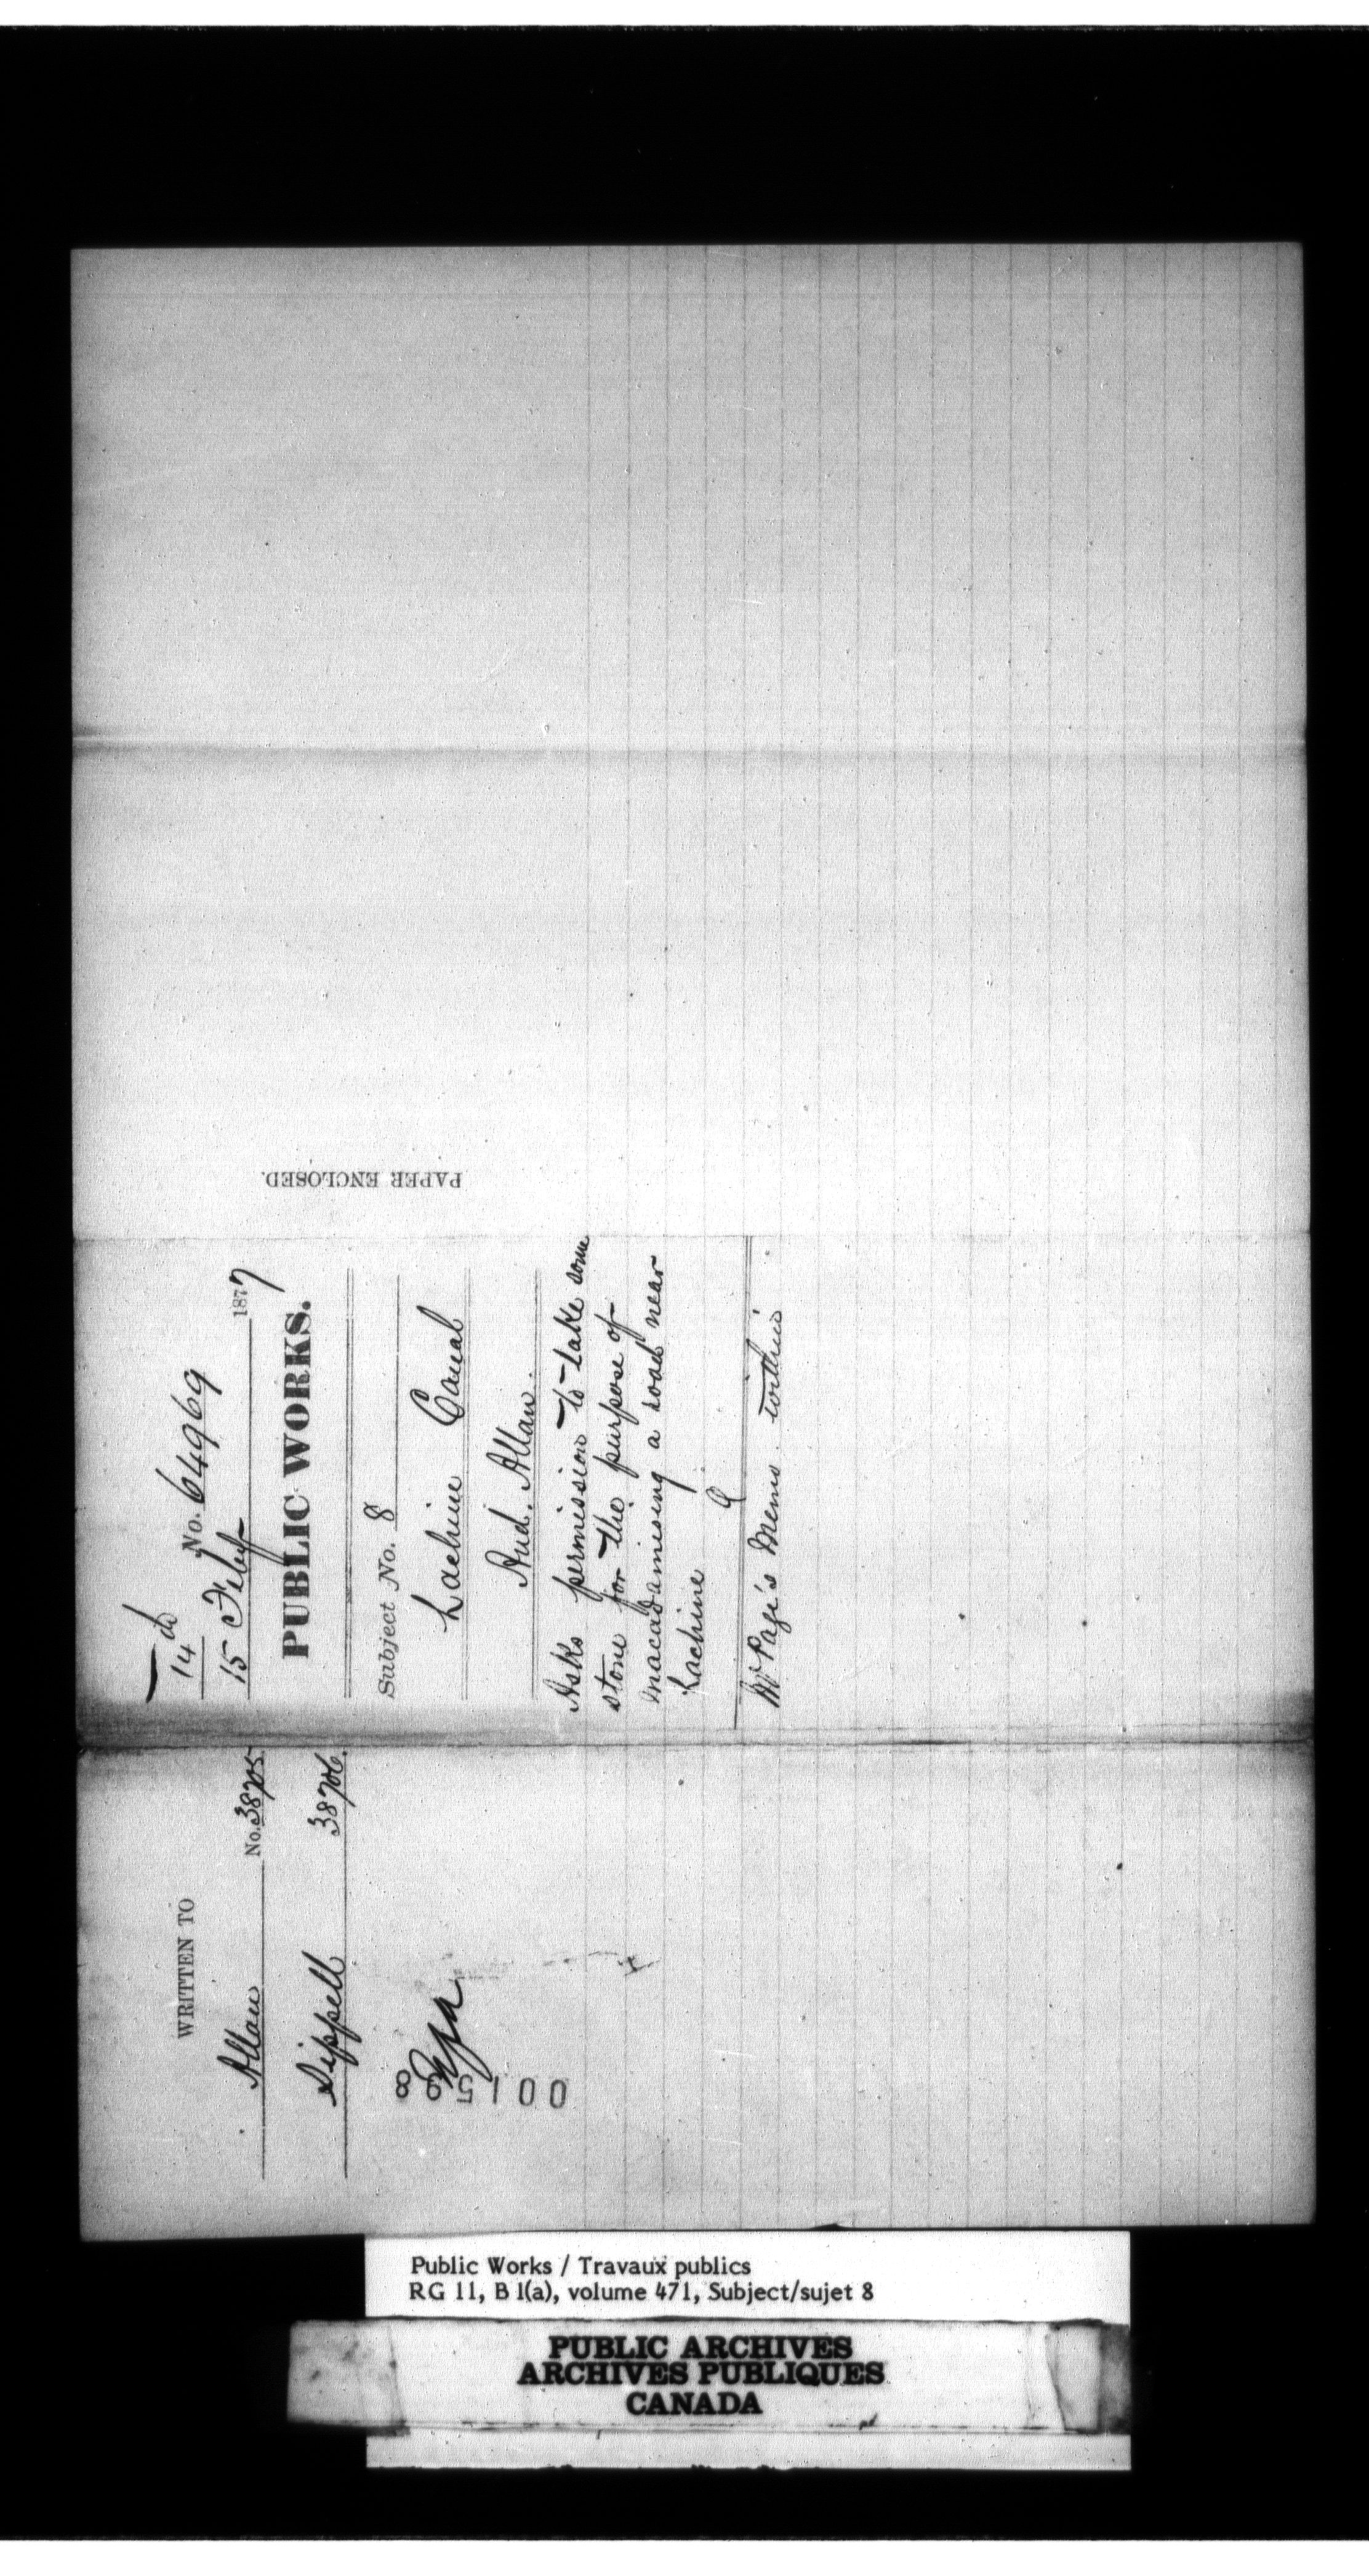 14th
No. 64969
15 Feby 1877
PUBLIC WORKS.
Subject No. 8
Lachine Canal
And. Allan.
Asks permission to take some
stone for the purpose of
macadamising a road near
Lachine
Mr Page's Memo. within
PAPER ENCLOSED.
WRITTEN TO
Allan No. 38705
Sippell 38706.
001598
Public Works / Travaux publics
RG 11, B 1(a), volume 471, Subject/sujet 8
PUBLIC ARCHIVES
ARCHIVES PUBLIQUES
CANADA